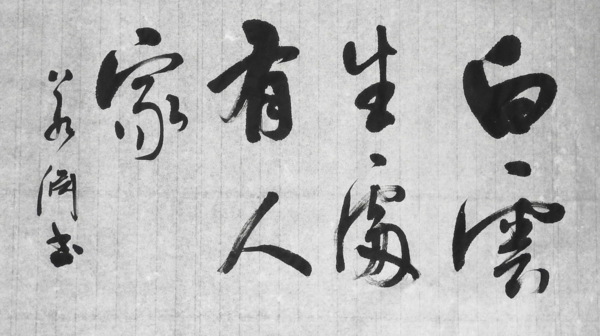 白雲
生處
有人
家
書